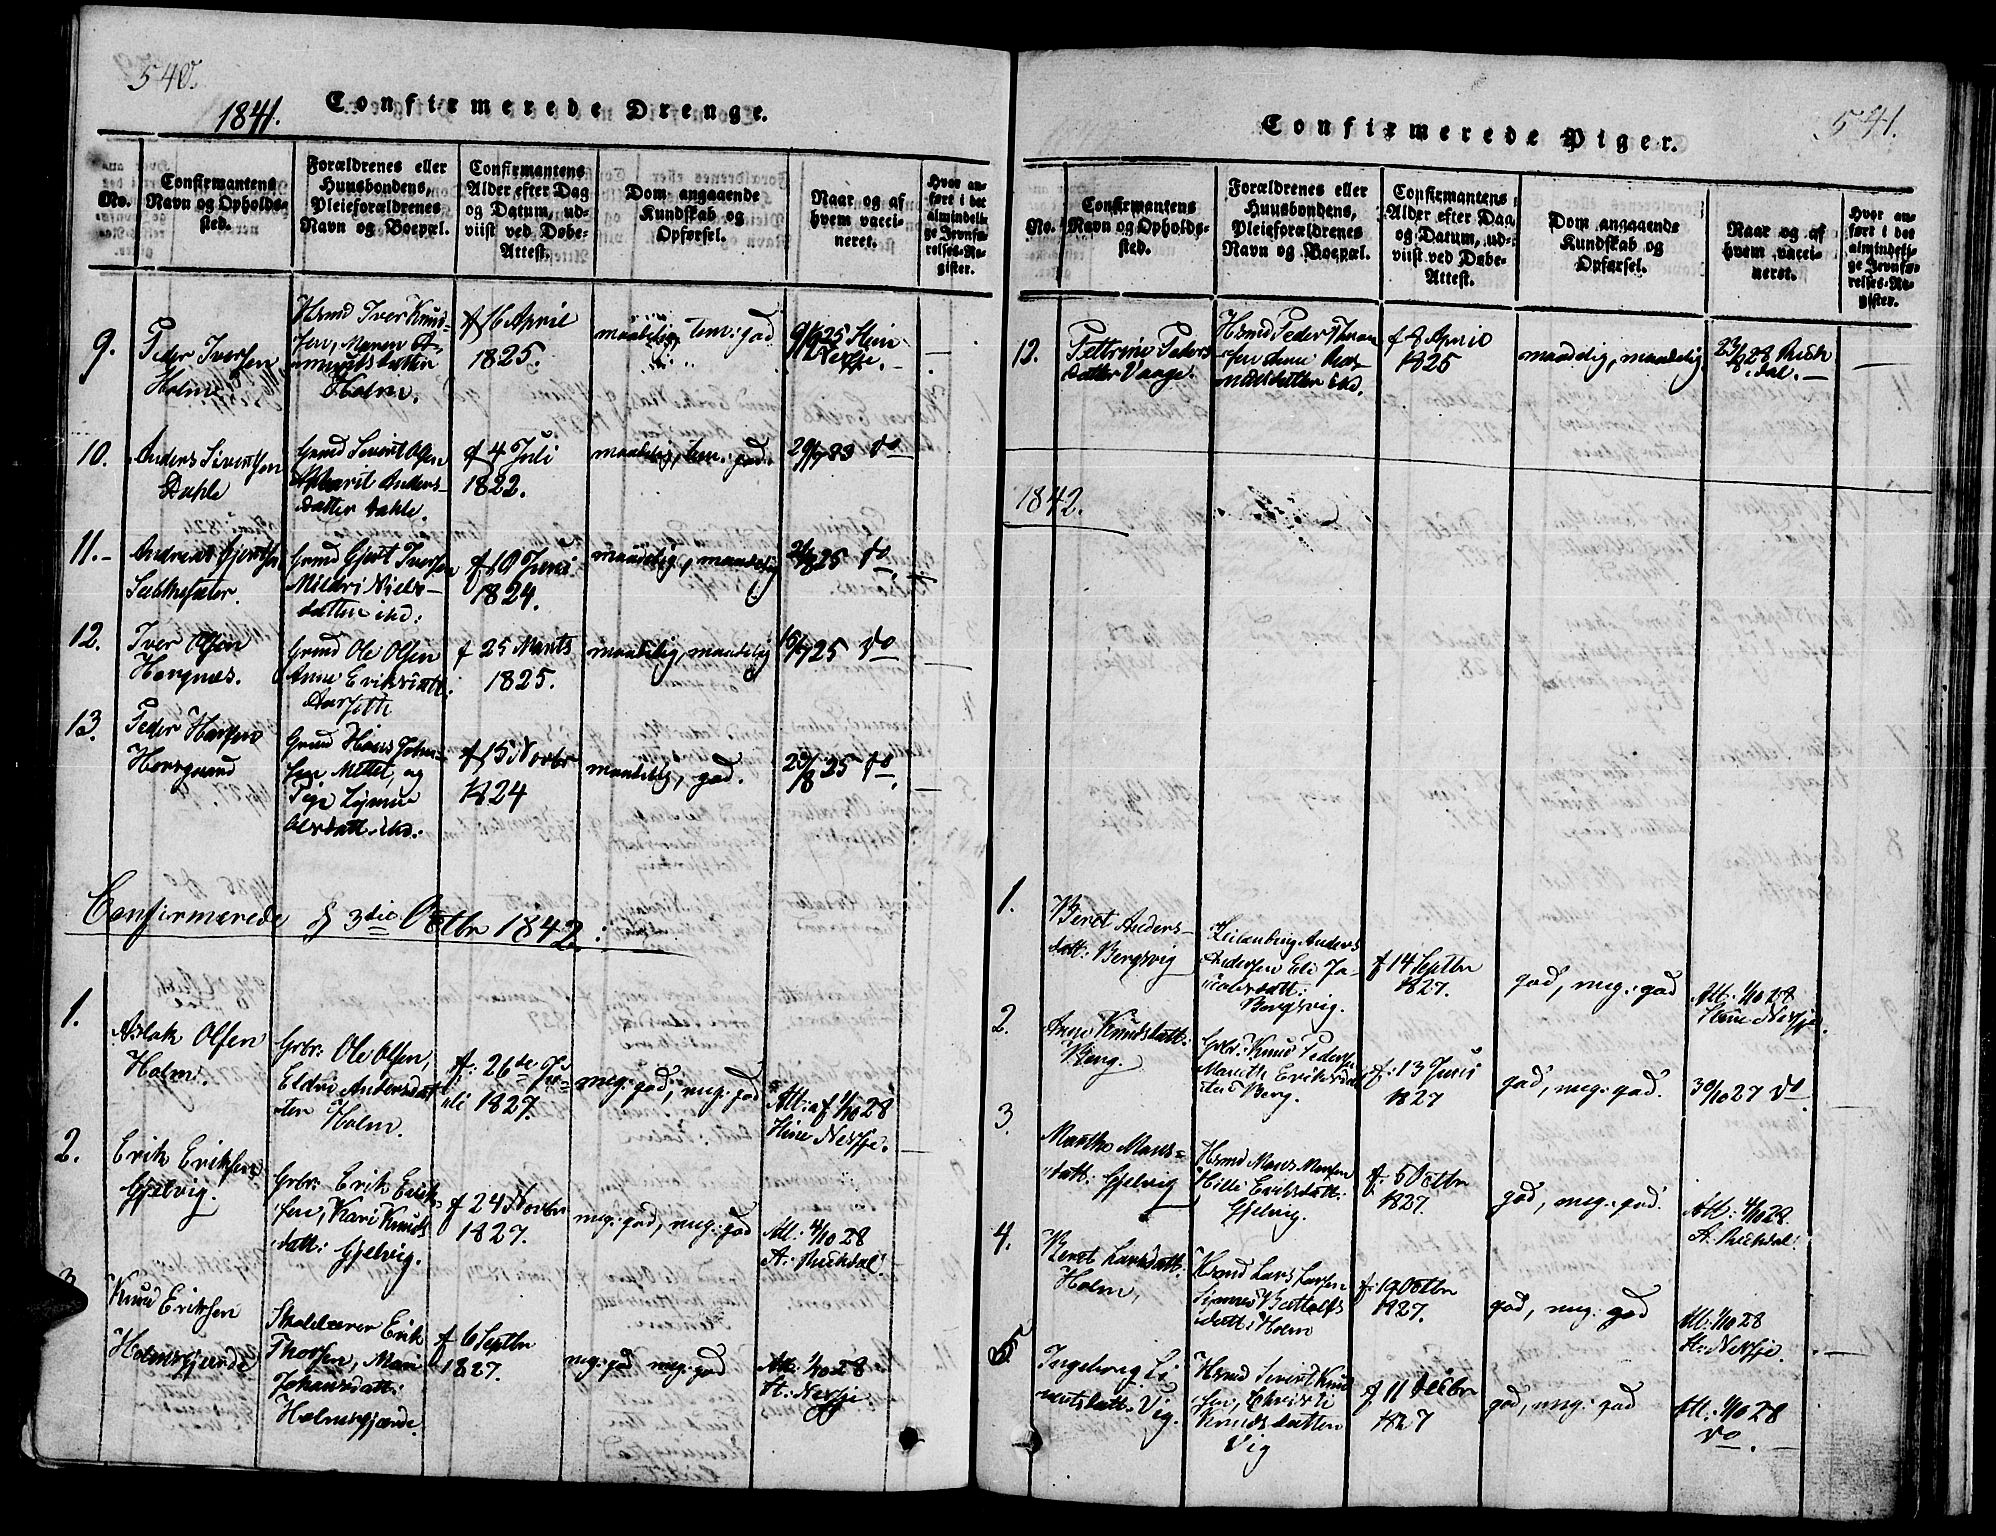 540.
1841.
Confirmerede Drenge.
No.
Confirmantens
Navn og Opholds-
sted.
Forældrenes eller
Huusbondens,
Pleieforældrenes
Navn og Boepæl.
Confirmantens
Alder efter Dag
og Datum, ud-
viist ved Døbe-
Attest.
Dom angaaende
Kundskab og
Opførsel.
Naar og af
hvem vacci-
neret.
Hvor an-
ført i det
almindeli-
ge Jevnfø-
relses-Re-
gister.
9.
Peder Iversen
Holme
Hsmd Iver Knud-
sen, Maren A-
mundsdatter
Holm.
f 16 April
1825.
maadelig, tem: god
25 Stein
Nesje.
10.
Anders Sivertsen
Dahle
Grmd Sivert Olsen
Marit Anders-
datter Dahle.
f 4 Juli
1822.
maadelig, tem: god.
29/7 83 do
11.
Andreas Gjertsen
Grmd Gjert Iversen
Mildri Niels-
datter ibd:
f 19 Juni
1824.
maadelig, maadelig
25 do
12.
Iver Olsen
Horgnæs.
Grmd Ole Olsen
Anne Eriksdatt:
Aarseth
f 25 Marts
1825.
maadelig, maadelig
25 do
13.
Peder Hansen
Horsgaard
Grmd Hans Johan-
sen Mettet, og
Pige Synnve
Olsdatt. ibd.
f 15 Novbr
1824
maadelig, god.
23/8 25 do
Confirmerede d 3die Octbr 1842:
1.
Aslak Olsen
Holm.
Grbr: Ole Olsen,
Eldri Andersdat-
ter Holm.
f: 26de Ju-
li 1827.
meg: god, meg: god
Att: af 1/10 28
Stine Nesje.
2.
Erik Eriksen
Gjelvig.
Grbr: Erik Erik-
sen, Kari Knuds
datt: Gjelvig.
f 24 Novbr
1827.
meg: god, meg: god
Att: 4/10 28
A: Reckdal.
3.
Knud Eriksen
Holmsgjerde
Skolelærer Erik
Thorsen, Mari
Johansdatt:
Holmsgjærde.
f 6 Septbr
1827.
meg: god meg: god
Att: 1/10 28
St: Nesje
541.
Confirmerede Piger.
No.
Confirmantens
Navn og Opholds-
sted.
Forældrenes eller
Huusbondens,
Pleieforældrenes
Navn og Boepæl.
Confirmantens
Alder efter Dag
og Datum, ud-
viist ved Døbe-
Attest.
Dom angaaende
Kundskab og
Opførsel.
Naar og af
hvem vacci-
neret.
Hvor an-
ført i det
almindeli-
ge Jevnfø-
relses-Re-
gister.
12.
Pettrine Peders
datter Vaage.
Hsmd Peder
sen Anne Ras-
musdatter ibd.
f 8 April
1825
maadelig, maadelig
28 Reck
dal.
1842.
1.
Beret Anders-
datt: Bergsvig
Leilænding Anders
Andersen Eli Ja-
cobsdatt:
Bergsvig.
f 14 Septbr
1827.
god, meg: god
Att: 1/10 28
Stine Nesje.
2.
Anne Knudsdatt:
Berg.
Grbr: Knud Pedersen
Mareth Eriksdat-
ter Berg.
f: 13 Juni
1827
god, meg: god.
30/10 27 do
3.
Martha Mons-
datt: Gjelvig
Hsmd Mons Monsen
Hilli Eriksdatt:
Gjelvig.
f: 5 Octbr
1827.
god, meg: god.
Att: 4/10 28.
A. Reckdal:
4.
Beret Larsdatt.
Holm,
Hsmd Lars Larsen
Synnev Bottolfs
datt: Holm
f: 19 Octbr
1827.
god, meg: god
Att: 1/10 28
St: Nesje.
5
Ingeborg Si-
vertsdatt: Vig.
Hsmd Sivert Knud
sen, Christi
Knudsdatter
Vig
f 11 Decbr
1827
god, meg: god
Att: 1/10 28
do